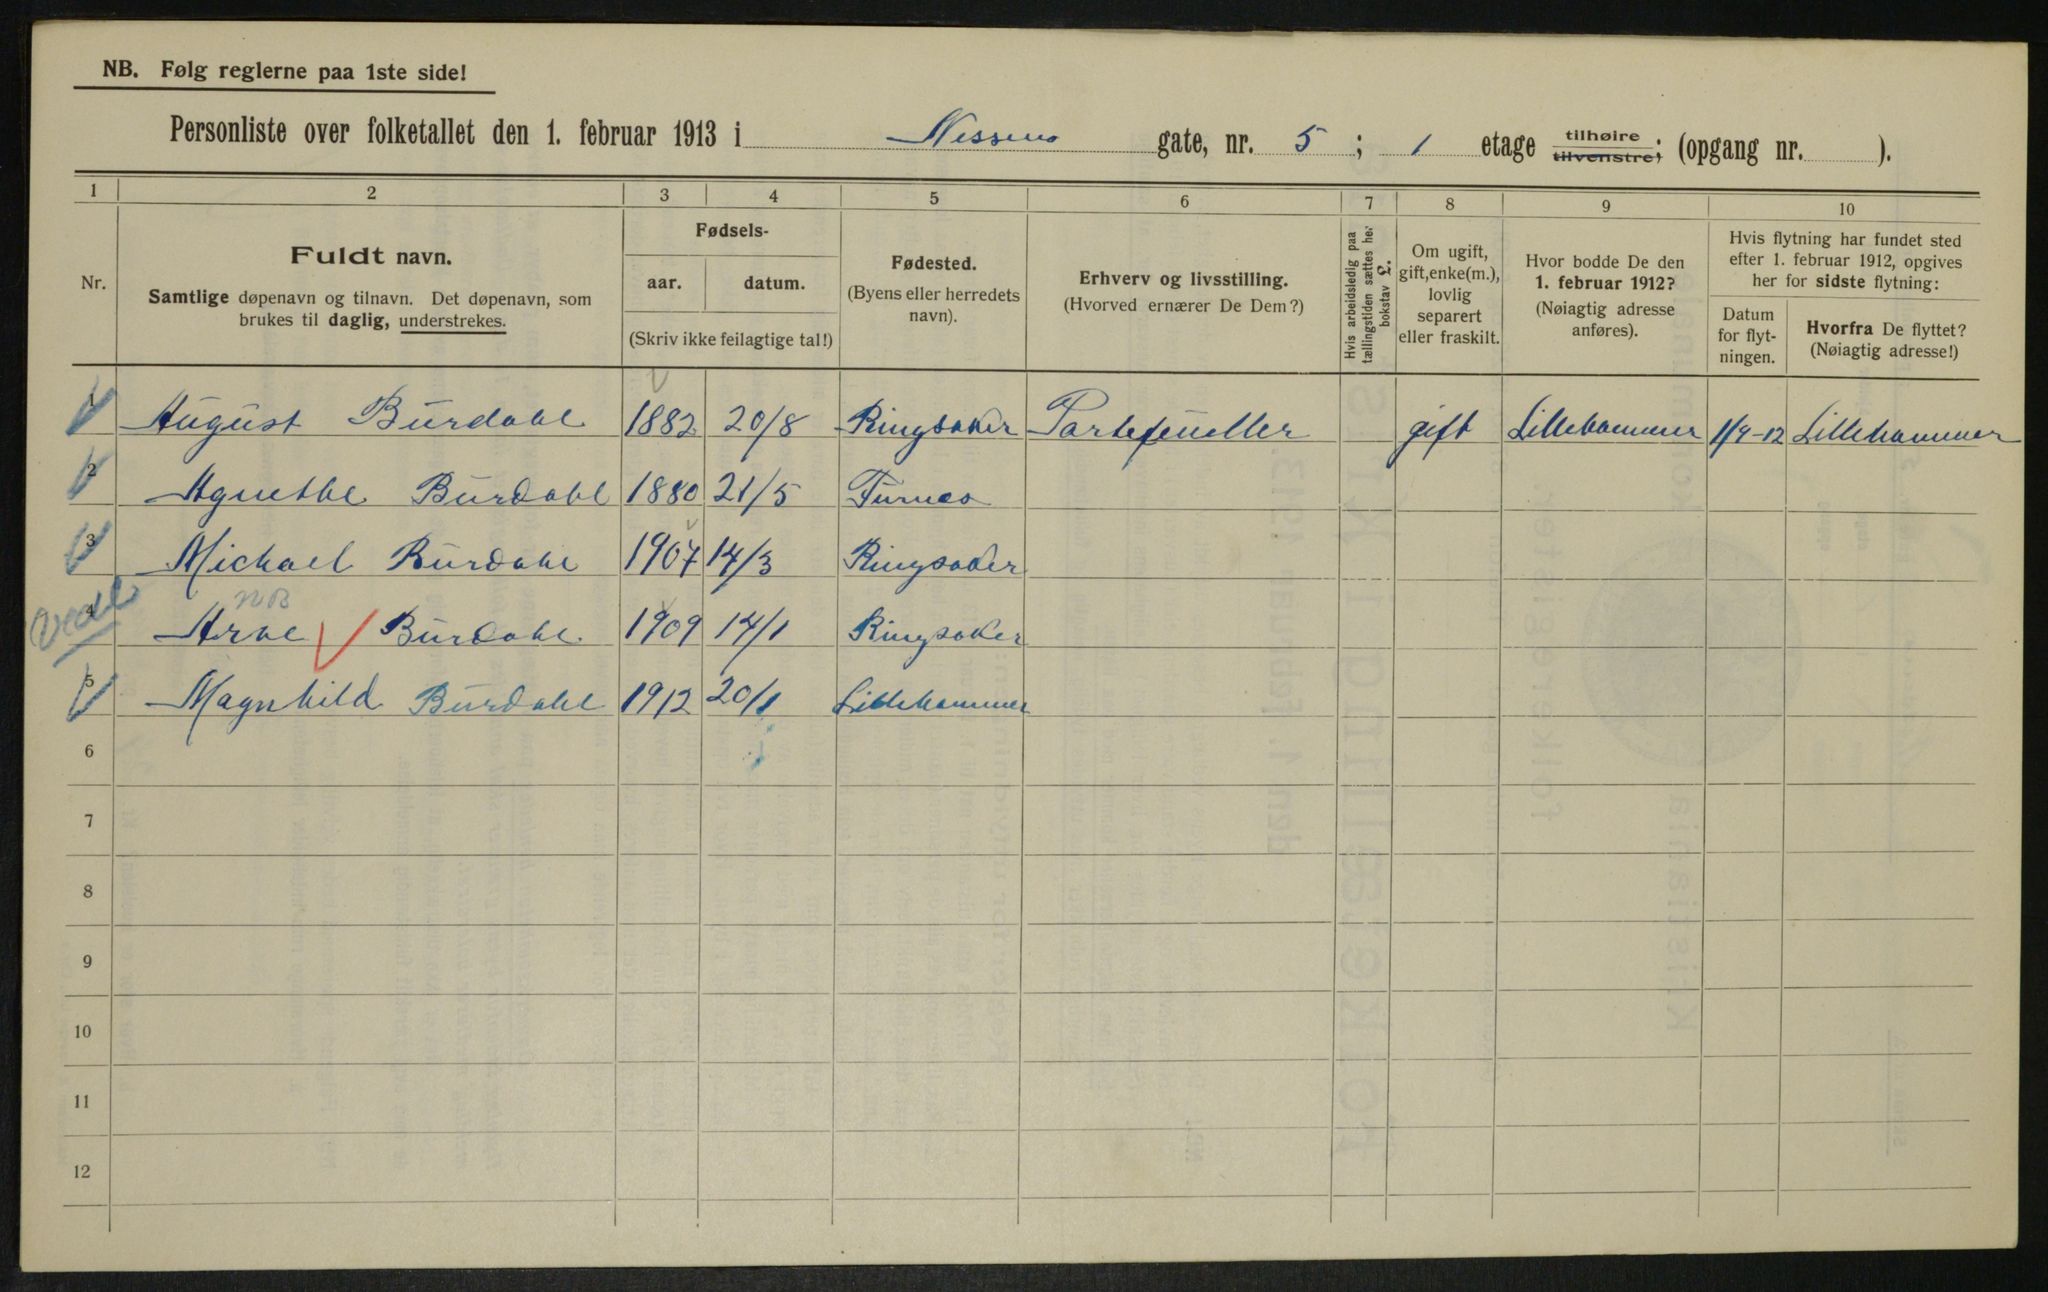 NB. Følg reglerne paa 1ste side!
Personliste over folketallet den 1. februar 1913 i Nissens gate, nr. 5 ; 1 etage tilhøire tilvenstre; (opgang nr. ).
1 2 3 4 5 6 7 8 9 10
Nr.
Fuldt navn.
Samtlige døpenavn og tilnavn. Det døpenavn, som
brukes til daglig, understrekes.
Fødsels-
aar. datum.
(Skriv ikke feilagtige tal!)
Fødested.
(Byens eller herredets
navn).
Erhverv og livsstilling.
(Hvorved ernærer De Dem?)
Hvis arbeidsledig paa
tællingstiden sættes her
bokstav £.
Om ugift,
gift, enke(m.),
lovlig
separert
eller fraskilt.
Hvor bodde De den
1. februar 1912?
(Nøiagtig adresse
anføres).
Hvis flytning har fundet sted
efter 1. februar 1912, opgives
her for sidste flytning:
Datum
for flyt-
ningen.
Hvorfra De flyttet?
(Nøiagtig adresse!)
1 August Burdahl 1882 20/8 Ringsaker Portefeuller gift Lillehammer 1/4-12 Lillehammer
2 Agnethe Burdahl 1880 21/5 Furnes
3 Michael Burdahl 1907 14/3 Ringsaker
NB
4 Arne Burdahl 1909 14/1 Ringsaker
5 Magnhild Burdahl 1912 20/1 Lillehammer
6
7
8
9
10
11
12